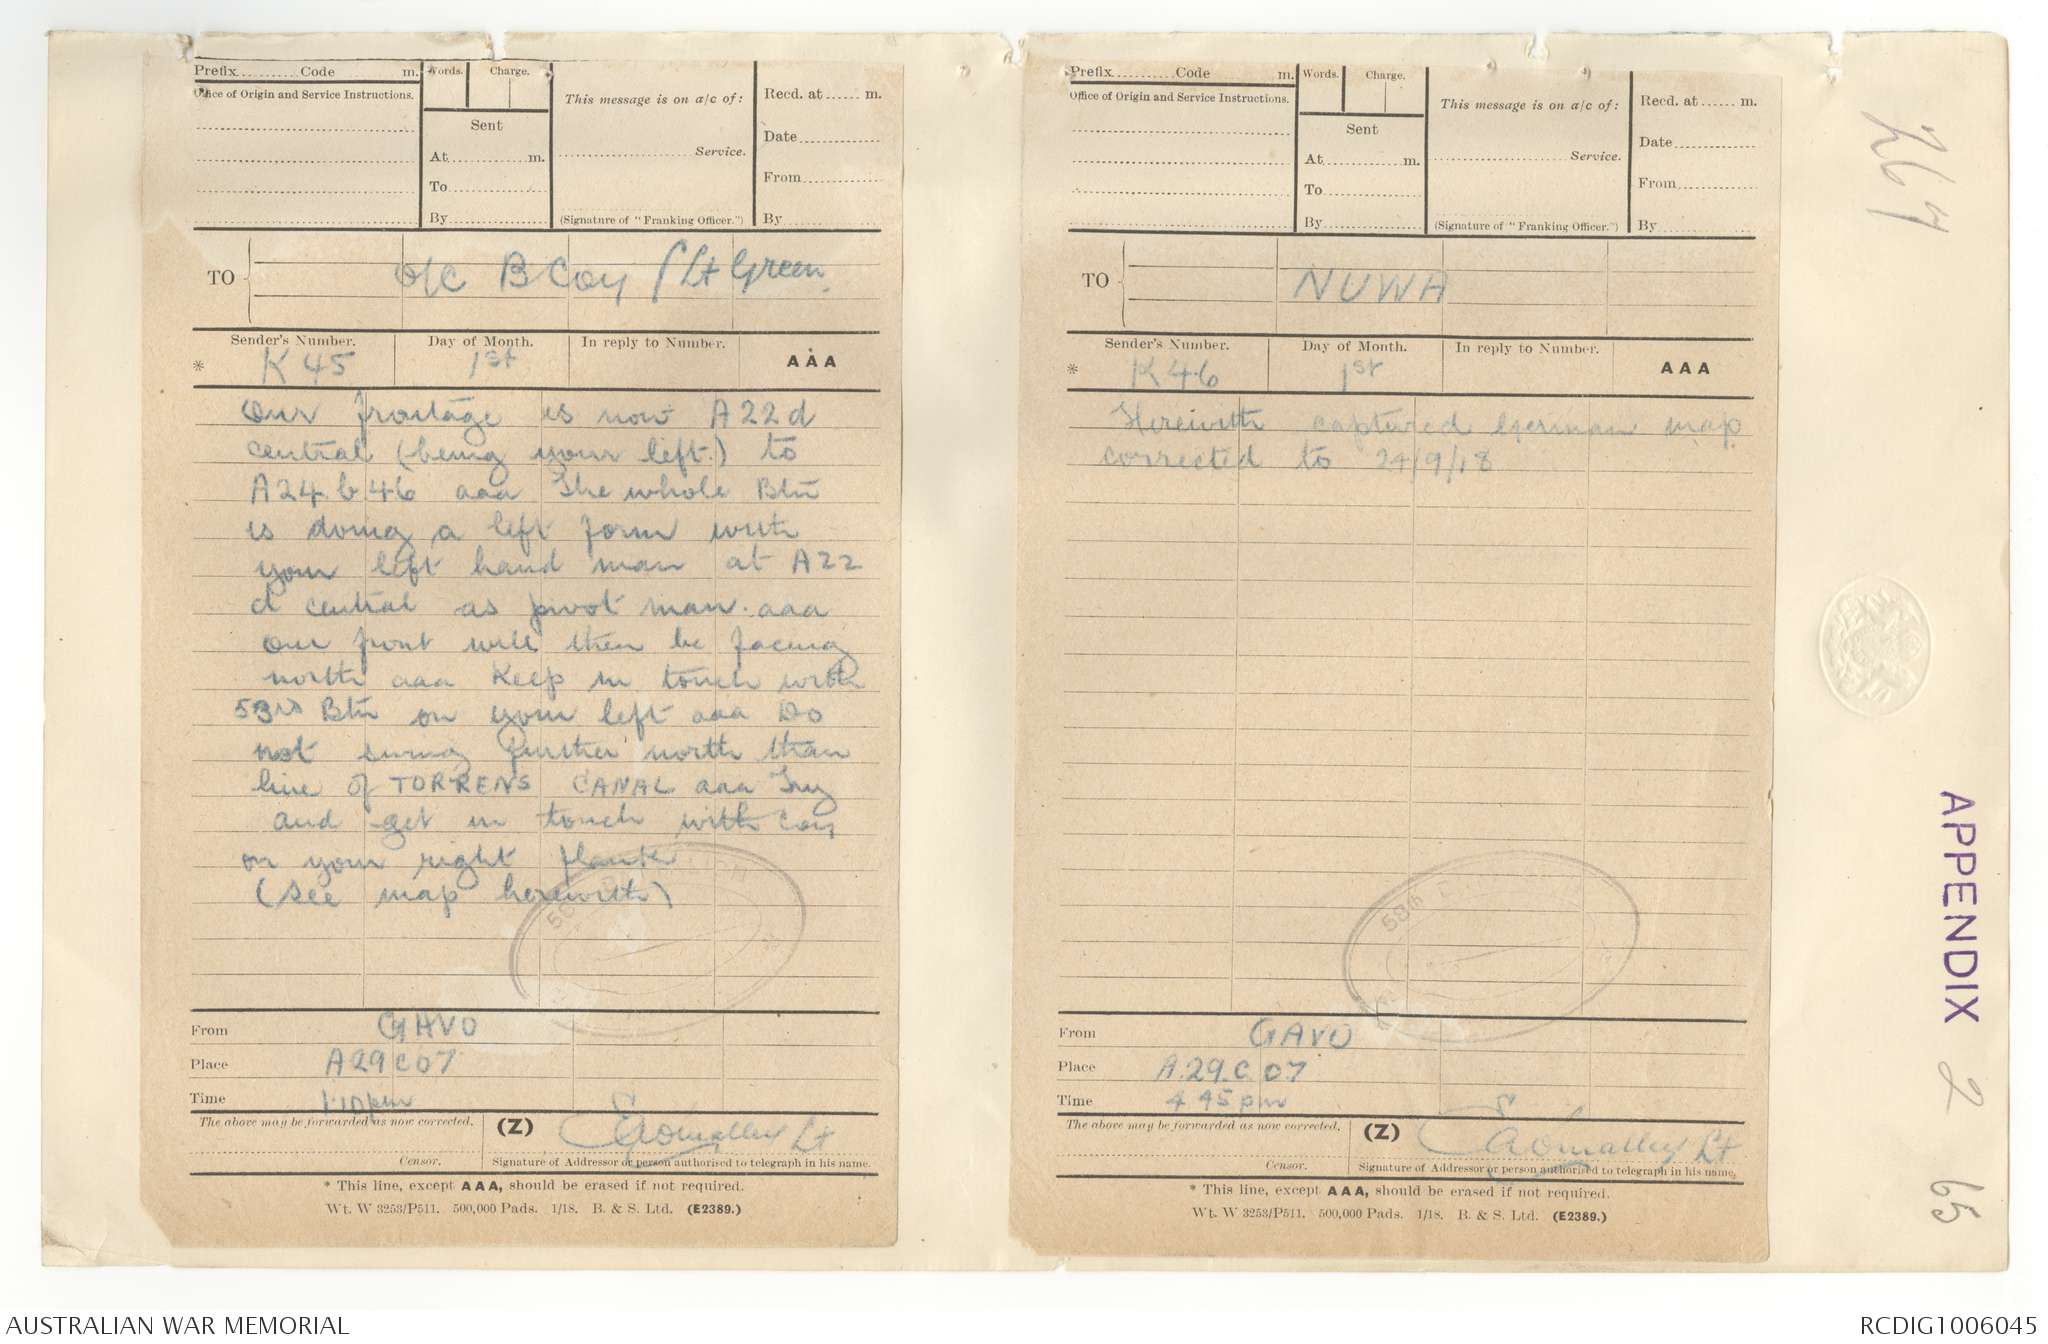 Prefix.......... Code m.
Words. Charge.
This message is on a/c of:
Recd. at ...... m.
Office of Origin and Service Instructions.
Sent
Date
At m.
Service.
To
From
By
(Signature of "Franking Officer.")
By
TO
O/C B Coy / Lt Green.
Sender's Number.
Day of Month.
In reply to Number.
AAA
* K 45
1st
Our frontage is now A22d
central (being your left.) to
A24.b.46 aaa The whole Btn
is doing a left form with
your left hand man at A22
d central as pivot man. aaa
our front will then be facing
north aaa Keep in touch with
53rd Btn on your left aaa Do
not swing further north than
line of TORRENS CANAL aaa Try
and get in touch with Coy
on your right flank
(see map herewith)
From GAVO
Place A29C07
Time 1.10pm
The above may be forwarded as now corrected.
(Z)
Lt
Censor.
Signature of Addressor or person authorised to telegraph in his name.
* This line, except AAA, should be erased if not required.
Wt. W 3253/P511. 500,000 Pads. 1/18. B. & S. Ltd. (E2389.)
Prefix.......... Code m.
Words. Charge.
This message is on a/c of:
Recd. at ...... m.
Office of Origin and Service Instructions.
Sent
Date
At m.
Service.
To
From
By
(Signature of "Franking Officer.")
By
TO
NUWA
Sender's Number.
Day of Month.
In reply to Number.
AAA
* K46
1st
Herewith captured German map
corrected to 24/9/18
From GAVO
Place A.29.C.07
Time 4 45pm
The above may be forwarded as now corrected.
(Z)
Lt
Censor.
Signature of Addressor or person authorised to telegraph in his name.
* This line, except AAA, should be erased if not required.
Wt. W 3253/P511. 500,000 Pads. 1/18. B. & S. Ltd. (E2389.)
APPENDIX 2
65
AUSTRALIAN WAR MEMORIAL
RCDIG1006045